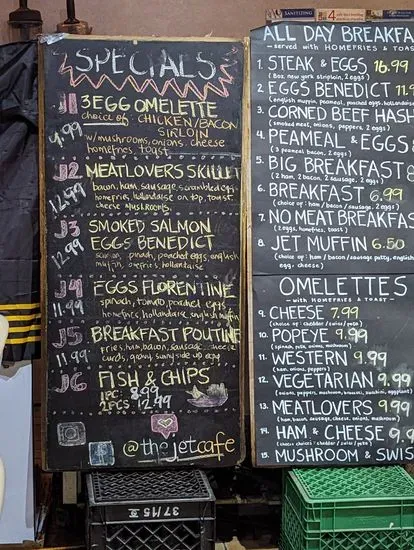 SPECIALS
J1 3EGG OMELETTE
9.99 choice of: CHICKEN/BACON
SIRLOIN
w/mushrooms, onions, cheese
homefries, toast
J2 MEATLOVERS SKILLET
12.99 bacon, ham, sausage, scrambled eggs
homefries, hollandaise on top, toast
cheese mushrooms
J3 SMOKED SALMON
12.99 EGGS BENEDICT
poached eggs, english
muffin, homefries, hollandaise
J4 EGGS FLORENTINE
11.99 spinach, tomato, poached eggs
homefries, hollandaise, english muffin
J5 BREAKFAST POUTINE
11.99 fries, ham, bacon, sausage, cheese
curds, gravy, sunny side up egg
J6 FISH & CHIPS
1PC: 8.99
2PCS 12.99
@thejetcafe
37/15
SANITIZING
4
ALL DAY BREAKFA
- served with HOMEFRIES & TOAST -
1. STEAK & EGGS 16.99
(8oz. new york striploin, 2 eggs)
2. EGGS BENEDICT 11.9
(english muffin, peameal, poached eggs, hollandaise
3. CORNED BEEF HASH
(smoked meat, onions, peppers, 2 eggs)
4. PEAMEAL & EGGS
(3 peameal bacon, 2 eggs)
5. BIG BREAKFAST 8
(2 ham, 2 bacon, 2 sausage, 2 eggs)
6. BREAKFAST 6.99
(choice of: ham / bacon / sausage, 2 eggs)
7. NO MEAT BREAKFAS
(2 eggs, homefries, toast)
8. JET MUFFIN 6.50
(choice of: ham / bacon / sausage patty, english
egg, cheese)
OMELETTES
- with HOMEFRIES & TOAST -
9. CHEESE 7.99
(choice of: cheddar / swiss / feta)
10. POPEYE 9.99
(spinach, onions, mushroom)
11. WESTERN 9.99
(ham, onions, peppers)
12. VEGETARIAN 9.99
(onions, peppers, mushroom, broccoli, zucchini, eggplant)
13. MEATLOVERS 9.99
(ham, bacon, sausage, cheese, onions, mushroom)
14. HAM & CHEESE 9.9
(cheese choices: cheddar / swiss / feta)
15. MUSHROOM & SWIS